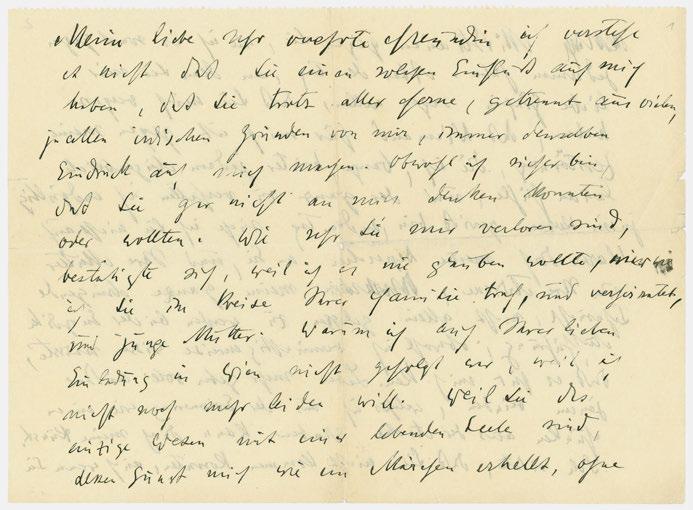 Meine liebe sehr verehrte Freundin, ich verstehe
es nicht daß Sie einen solchen Einfluß auf mich
haben, daß Sie trotz aller Ferne, getrennt aus vielen,
ja allen irdischen Gründen von mir, immer denselben
Eindruck auf mich machen. Obwohl ich sicher bin,
daß Sie gar nicht an mich denken konnten
oder wollten. Wie sehr Sie mir verloren sind,
bestätigte sich, weil ich es nie glauben wollte,
ich Sie im Kreise Ihrer Familie traf, und verheiratet,
und junge Mutter. Warum ich auf Ihrer lieben
Einladung in Wien nicht gefolgt war, weil ich
nicht noch mehr leiden will. Weil Sie das
einzige Wesen mit einer lebenden Seele sind,
dessen Gunst mich wie ein Märchen erhellt, ohne